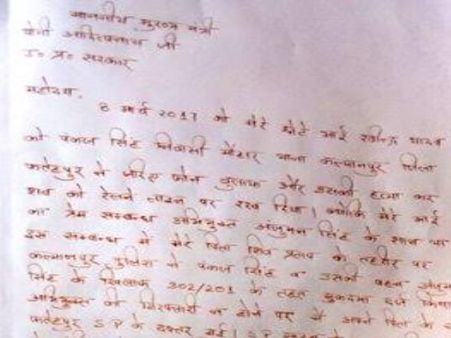 माननीय मुख्य मंत्री
योगी आदित्यनाथ जी
उ० प्र० सरकार
महोदय,
8 मार्च 2017 को मेरे छोटे भाई रवीन्द्र यादव
को पंकज सिंह निवासी थाना कल्यानपुर जिला
फतेहपुर ने जरिए फोन बुलाया और उसकी हत्या कर
शव को रेलवे लाइन पर रख दिया। क्योंकि मेरे भाई
का प्रेम सम्बन्ध अभियुक्त अंजुमन सिंह के साथ था
इस सम्बन्ध में मेरे पिता शिव प्रताप की तहरीर पर
कल्यानपुर पुलिस ने पंकज सिंह व उसकी बहन
सिंह के खिलाफ 302/201 के तहत मुकदमा दर्ज किया
अभियुक्त की गिरफ्तारी न होने पर मैं अपने पिता के
फतेहपुर S P के दफ्तर गई। S P